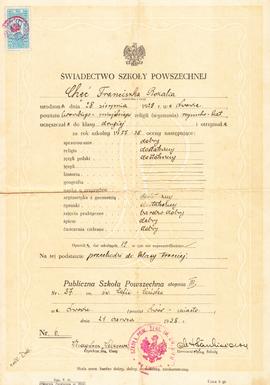 ŚWIADECTWO SZKOŁY POWSZECHNEJ
Chęć Franciszka Rozalia
urodzona dnia 28 sierpnia 1928 r. w Lwowie
powiatu lwowskiego-miejskiego religii (wyznania) rzymsko-kat.
uczęszczał a do klasy drugiej i otrzymał a
za rok szkolny 1937/38 oceny następujące:
sprawowanie dobry
religia dostateczny
język polski dostateczny
język
historia
geografia
nauka o przyrodzie
arytmetyka z geometrią
rysunki dostateczny
zajęcia praktyczne bardzo dobry
śpiew dobry
ćwiczenia cielesne dobry
Opuścił dni szkolnych 12, w tym nie usprawiedliwiono
Na tej podstawie przechodzi do klasy trzeciej
Publiczna Szkoła Powszechna stopnia III
Nr 27. im. św. Zofii - żeńska
we Lwowie powiat Lwów - miasto
dnia 21 czerwca 1938 r.
Nr 6.
Opiekun klasy
Kierownik Szkoły